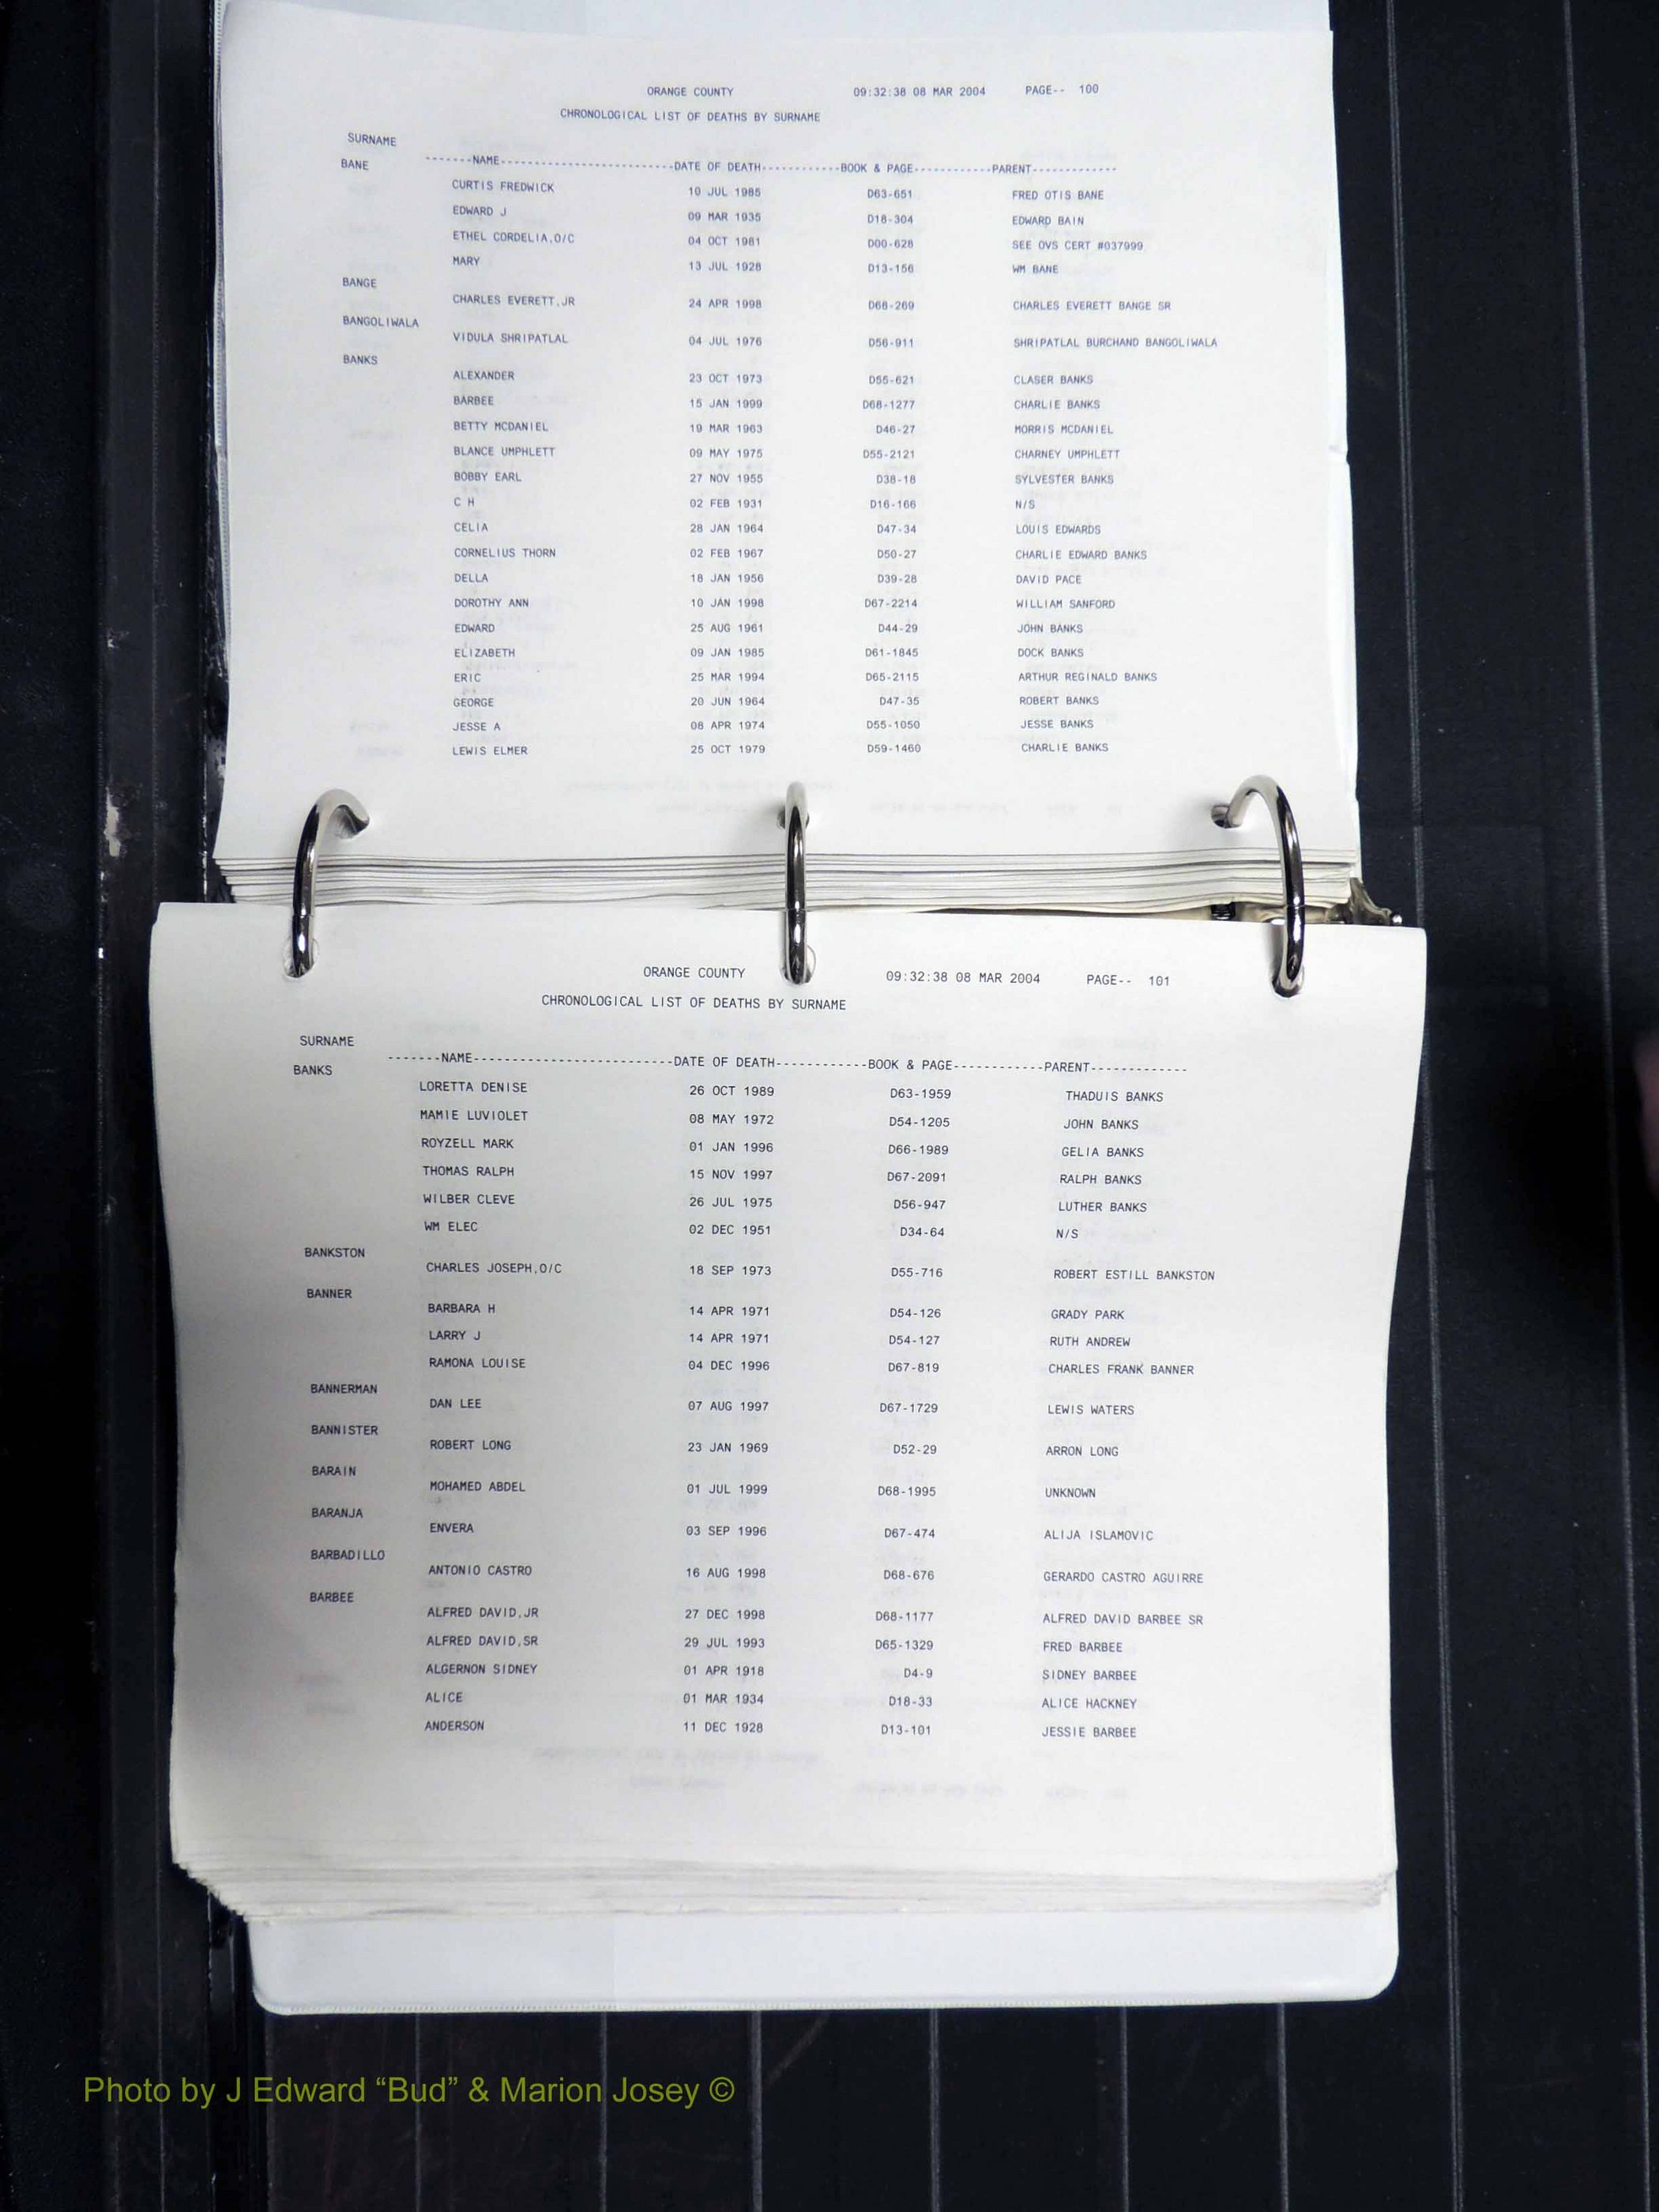 ORANGE COUNTY 09:32:38 08 MAR 2004 PAGE-- 100
CHRONOLOGICAL LIST OF DEATHS BY SURNAME
SURNAME
-------NAME--------------------------DATE OF DEATH------------BOOK & PAGE------------PARENT-------------
BANE
CURTIS FREDWICK 10 JUL 1985 D63-651 FRED OTIS BANE
EDWARD J 09 MAR 1935 D18-304 EDWARD BAIN
ETHEL CORDELIA,O/C 04 OCT 1981 D00-628 SEE OVS CERT #037999
MARY 13 JUL 1928 D13-156 WM BANE
BANGE
CHARLES EVERETT,JR 24 APR 1998 D68-269 CHARLES EVERETT BANGE SR
BANGOLIWALA
VIDULA SHRIPATLAL 04 JUL 1976 D56-911 SHRIPATLAL BURCHAND BANGOLIWALA
BANKS
ALEXANDER 23 OCT 1973 D55-621 CLASER BANKS
BARBEE 15 JAN 1999 D68-1277 CHARLIE BANKS
BETTY MCDANIEL 19 MAR 1963 D46-27 MORRIS MCDANIEL
BLANCE UMPHLETT 09 MAY 1975 D55-2121 CHARNEY UMPHLETT
BOBBY EARL 27 NOV 1955 D38-18 SYLVESTER BANKS
C H 02 FEB 1931 D16-166 N/S
CELIA 28 JAN 1964 D47-34 LOUIS EDWARDS
CORNELIUS THORN 02 FEB 1967 D50-27 CHARLIE EDWARD BANKS
DELLA 18 JAN 1956 D39-28 DAVID PACE
DOROTHY ANN 10 JAN 1998 D67-2214 WILLIAM SANFORD
EDWARD 25 AUG 1961 D44-29 JOHN BANKS
ELIZABETH 09 JAN 1985 D61-1845 DOCK BANKS
ERIC 25 MAR 1994 D65-2115 ARTHUR REGINALD BANKS
GEORGE 20 JUN 1964 D47-35 ROBERT BANKS
JESSE A 08 APR 1974 D55-1050 JESSE BANKS
LEWIS ELMER 25 OCT 1979 D59-1460 CHARLIE BANKS
ORANGE COUNTY 09:32:38 08 MAR 2004 PAGE-- 101
CHRONOLOGICAL LIST OF DEATHS BY SURNAME
SURNAME
-------NAME--------------------------DATE OF DEATH------------BOOK & PAGE------------PARENT-------------
BANKS
LORETTA DENISE 26 OCT 1989 D63-1959 THADUIS BANKS
MAMIE LUVIOLET 08 MAY 1972 D54-1205 JOHN BANKS
ROYZELL MARK 01 JAN 1996 D66-1989 GELIA BANKS
THOMAS RALPH 15 NOV 1997 D67-2091 RALPH BANKS
WILBER CLEVE 26 JUL 1975 D56-947 LUTHER BANKS
WM ELEC 02 DEC 1951 D34-64 N/S
BANKSTON
CHARLES JOSEPH,O/C 18 SEP 1973 D55-716 ROBERT ESTILL BANKSTON
BANNER
BARBARA H 14 APR 1971 D54-126 GRADY PARK
LARRY J 14 APR 1971 D54-127 RUTH ANDREW
RAMONA LOUISE 04 DEC 1996 D67-819 CHARLES FRANK BANNER
BANNERMAN
DAN LEE 07 AUG 1997 D67-1729 LEWIS WATERS
BANNISTER
ROBERT LONG 23 JAN 1969 D52-29 ARRON LONG
BARAIN
MOHAMED ABDEL 01 JUL 1999 D68-1995 UNKNOWN
BARANJA
ENVERA 03 SEP 1996 D67-474 ALIJA ISLAMOVIC
BARBADILLO
ANTONIO CASTRO 16 AUG 1998 D68-676 GERARDO CASTRO AGUIRRE
BARBEE
ALFRED DAVID,JR 27 DEC 1998 D68-1177 ALFRED DAVID BARBEE SR
ALFRED DAVID,SR 29 JUL 1993 D65-1329 FRED BARBEE
ALGERNON SIDNEY 01 APR 1918 D4-9 SIDNEY BARBEE
ALICE 01 MAR 1934 D18-33 ALICE HACKNEY
ANDERSON 11 DEC 1928 D13-101 JESSIE BARBEE
Photo by J Edward “Bud” & Marion Josey ©